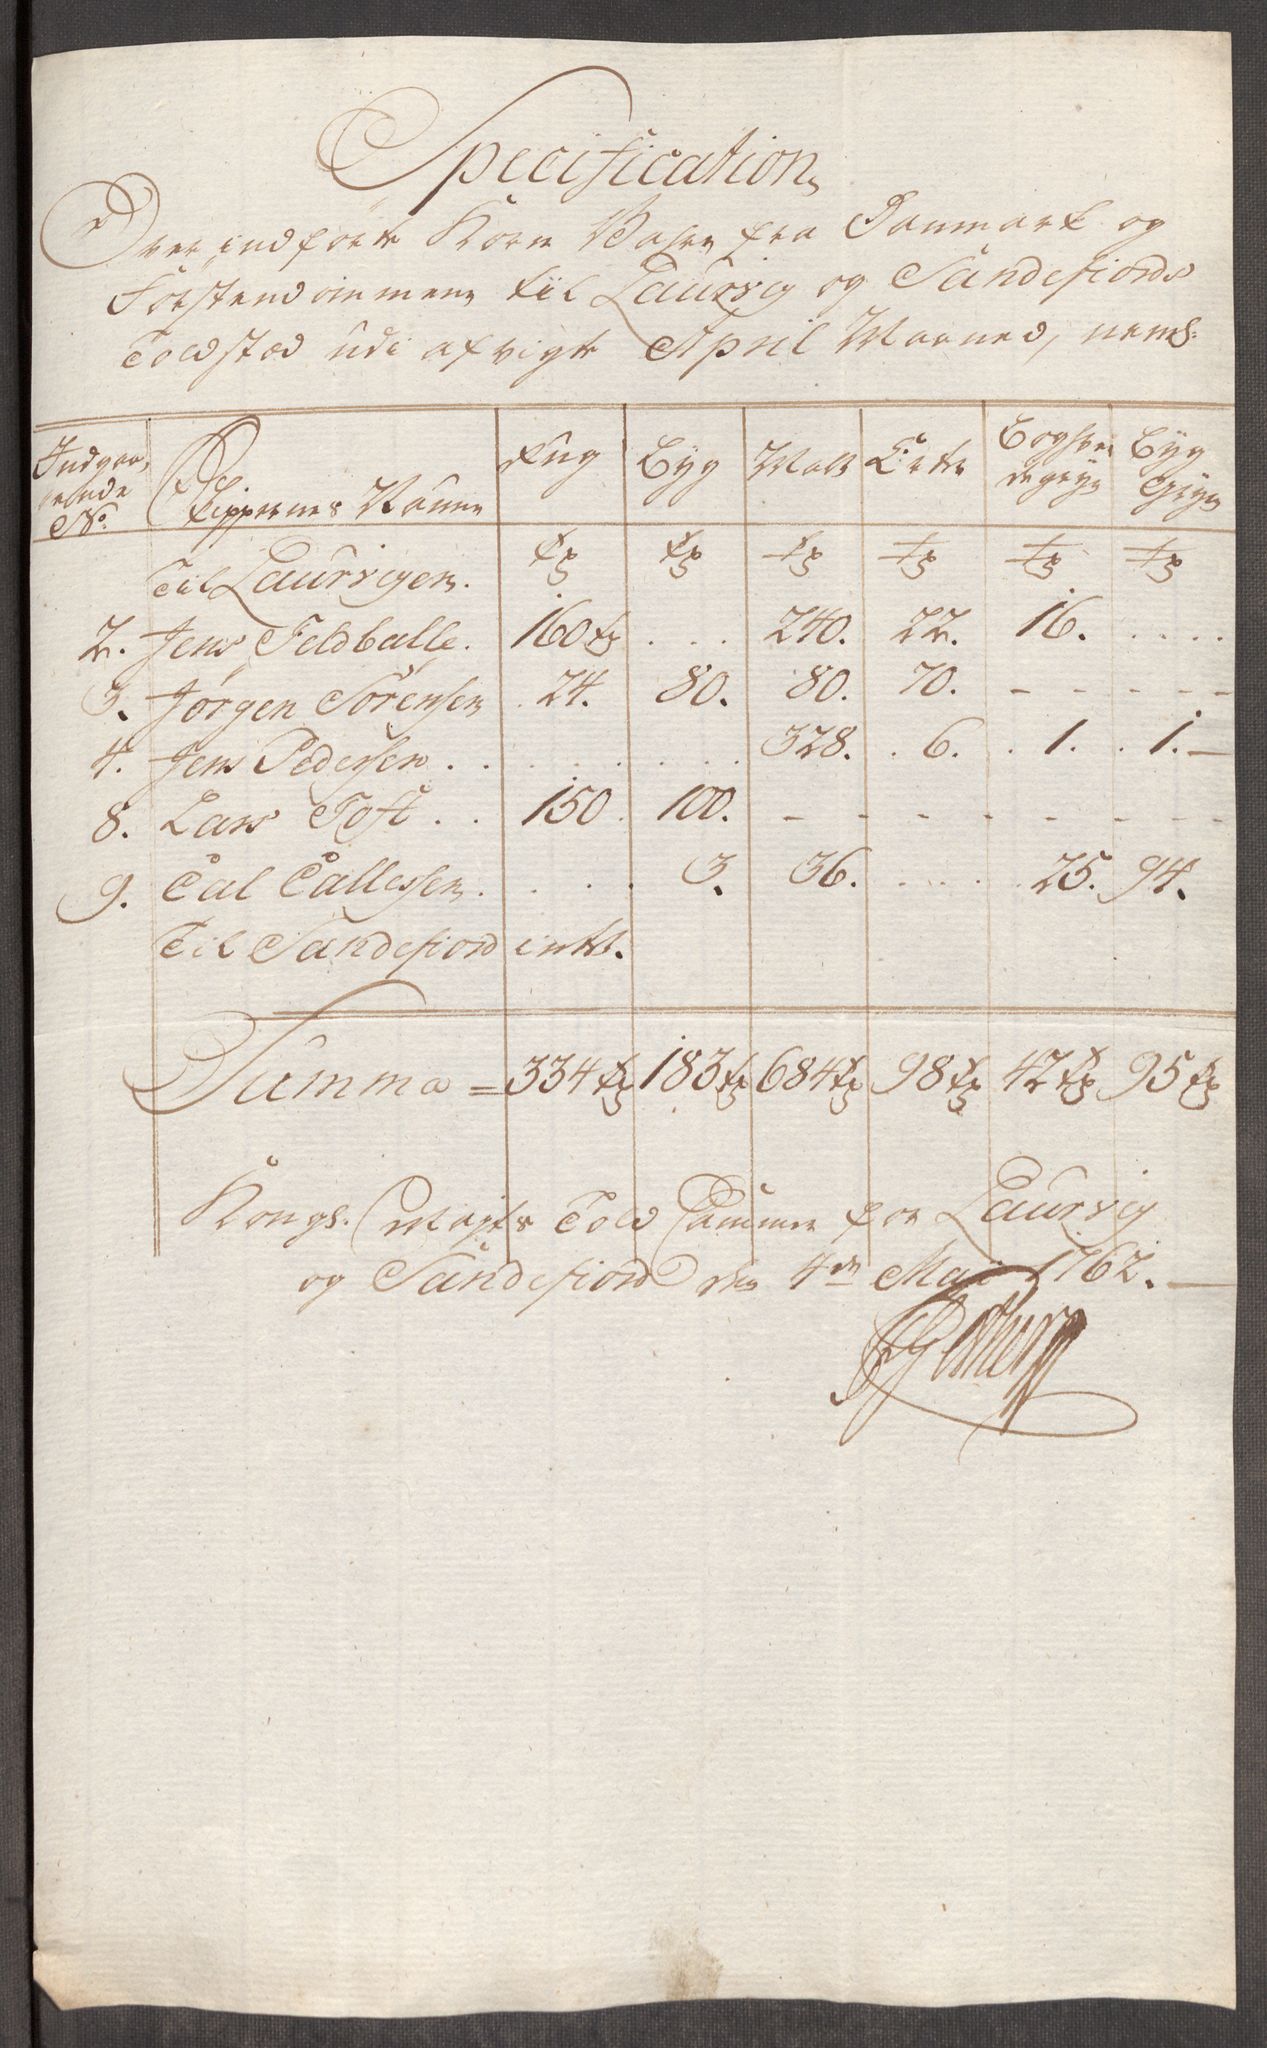 Specification
Over indførte Korn Vahre fra Danmark og
Førstendommene til Laurvig og Sandefiords
Toldsted udi afvigte April Maaned, neml:
Indgaa,
ende
No. Skippernes Nafne Rug Byg Malt Erter Boghve
degryn Byg
Gryn
Til Laurvigen. Tr Tr Tr Tr Tr Tr
2. Jens Feldballe. 160 Tr . . . 240. 22. 16. . . . .
3. Jørgen Sörensen 24. 80. 80. 70. - - - - -
4. Jens Pedersen . . . . . . . . 328. . 6. . 1. . 1. —
8. Lars Toft . . 150. 100. - - - - - - - -
9. Pal Pallessen . . . . 3. 36. . . . . 25. 94.
Til Sandefiord intet.
Summa = 334 Tr 183 Tr 684 Tr 98 Tr 42 Tr 95 Tr
Kongs. Mayts Told Cammer for Laurvig
og Sandefiord den 4de Maji 1762. —